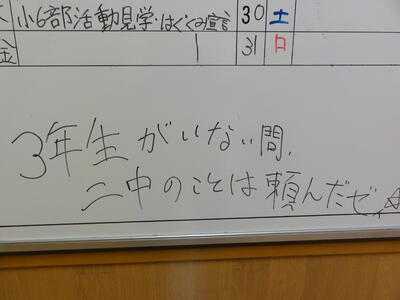 小6部活動見学・はぐくみ宣言 30 土
金 31 日
3年生がいない間、
二中のことは頼んだゼ☆